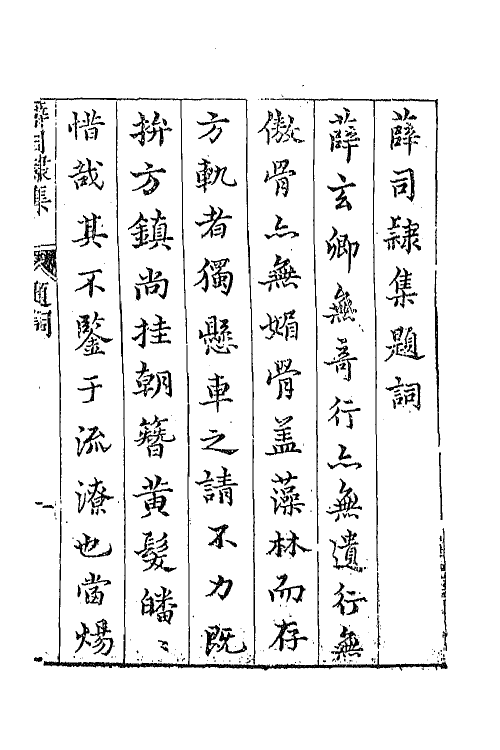 薛司隸集題詞
薛玄卿無奇行亦無遺行無
傲骨亦無媚骨盖藻林而存
方軌者獨懸車之請不力既
拚方鎮尚挂朝簪黄髮皤〻
惜哉其不鑒于流潦也當煬
薛司隸集
題詞
一